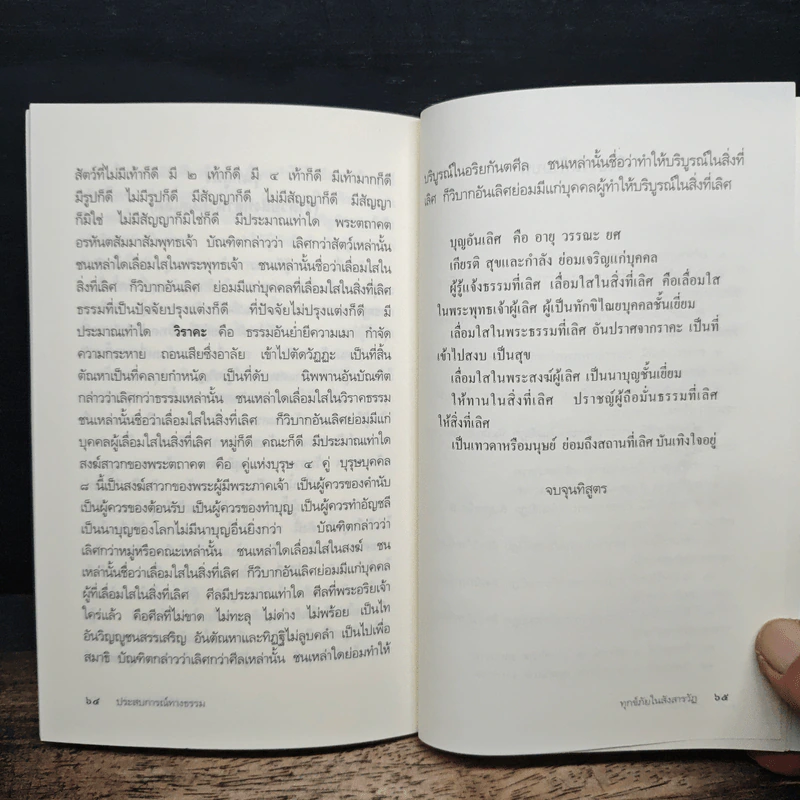 สัตว์ที่ไม่มีเท้าก็ดี มี ๒ เท้าก็ดี มี ๔ เท้าก็ดี มีเท้ามากก็ดี
มีรูปก็ดี ไม่มีรูปก็ดี มีสัญญาก็ดี ไม่มีสัญญาก็ดี มีสัญญา
ก็มิใช่ ไม่มีสัญญาก็มิใช่ก็ดี มีประมาณเท่าใด พระตถาคต
อรหันตสัมมาสัมพุทธเจ้า บัณฑิตกล่าวว่า เลิศกว่าสัตว์เหล่านั้น
ชนเหล่าใดเลื่อมใสในพระพุทธเจ้า ชนเหล่านั้นชื่อว่าเลื่อมใสใน
สิ่งที่เลิศ ก็วิบากอันเลิศ ย่อมมีแก่บุคคลที่เลื่อมใสในสิ่งที่เลิศ
ธรรมที่เป็นปัจจัยปรุงแต่งก็ดี ที่ปัจจัยไม่ปรุงแต่งก็ดี มี
ประมาณเท่าใด วิราคะ คือ ธรรมอันย่ำยีความเมา กำจัด
ความกระหาย ถอนเสียซึ่งอาลัย เข้าไปตัดวัฏฏะ เป็นที่สิ้น
ตัณหาเป็นที่คลายกำหนัด เป็นที่ดับ นิพพานอันบัณฑิต
กล่าวว่าเลิศกว่าธรรมเหล่านั้น ชนเหล่าใดเลื่อมใสในวิราคธรรม
ชนเหล่านั้นชื่อว่าเลื่อมใสในสิ่งที่เลิศ ก็วิบากอันเลิศย่อมมีแก่
บุคคลผู้เลื่อมใสในสิ่งที่เลิศ หมู่ก็ดี คณะก็ดี มีประมาณเท่าใด
สงฆ์สาวกของพระตถาคต คือ คู่แห่งบุรุษ ๔ คู่ บุรุษบุคคล
๘ นี้เป็นสงฆ์สาวกของพระผู้มีพระภาคเจ้า เป็นผู้ควรของคำนับ
เป็นผู้ควรของต้อนรับ เป็นผู้ควรของทำบุญ เป็นผู้ควรทำอัญชลี
เป็นนาบุญของโลกไม่มีนาบุญอื่นยิ่งกว่า บัณฑิตกล่าวว่า
เลิศกว่าหมู่หรือคณะเหล่านั้น ชนเหล่าใดเลื่อมใสในสงฆ์ ชน
เหล่านั้นชื่อว่าเลื่อมใสในสิ่งที่เลิศ ก็วิบากอันเลิศย่อมมีแก่บุคคล
ผู้ที่เลื่อมใสในสิ่งที่เลิศ ศีลมีประมาณเท่าใด ศีลที่พระอริยเจ้า
ใคร่แล้ว คือศีลที่ไม่ขาด ไม่ทะลุ ไม่ด่าง ไม่พร้อย เป็นไท
อันวิญญูชนสรรเสริญ อันตัณหาและทิฏฐิไม่ลูบคลำ เป็นไปเพื่อ
สมาธิ บัณฑิตกล่าวว่าเลิศกว่าศีลเหล่านั้น ชนเหล่าใดย่อมทำให้
๖๔ ประสบการณ์ทางธรรม
บริบูรณ์ในอริยกันตศีล ชนเหล่านั้นชื่อว่าทำให้บริบูรณ์ในสิ่งที่
เลิศ ก็วิบากอันเลิศย่อมมีแก่บุคคลผู้ทำให้บริบูรณ์ในสิ่งที่เลิศ
บุญอันเลิศ คือ อายุ วรรณะ ยศ
เกียรติ สุขและกำลัง ย่อมเจริญแก่บุคคล
ผู้รู้แจ้งธรรมที่เลิศ เลื่อมใสในสิ่งที่เลิศ คือเลื่อมใส
ในพระพุทธเจ้าผู้เลิศ ผู้เป็นทักขิไณยบุคคลชั้นเยี่ยม
เลื่อมใสในพระธรรมที่เลิศ อันปราศจากราคะ เป็นที่
เข้าไปสงบ เป็นสุข
เลื่อมใสในพระสงฆ์ผู้เลิศ เป็นนาบุญชั้นเยี่ยม
ให้ทานในสิ่งที่เลิศ ปราชญ์ผู้ถือมั่นธรรมที่เลิศ
ให้สิ่งที่เลิศ
เป็นเทวดาหรือมนุษย์ ย่อมถึงสถานที่เลิศ บันเทิงใจอยู่
จบจุนทิสูตร
ทุกข์ภัยในสังสารวัฏ ๖๕